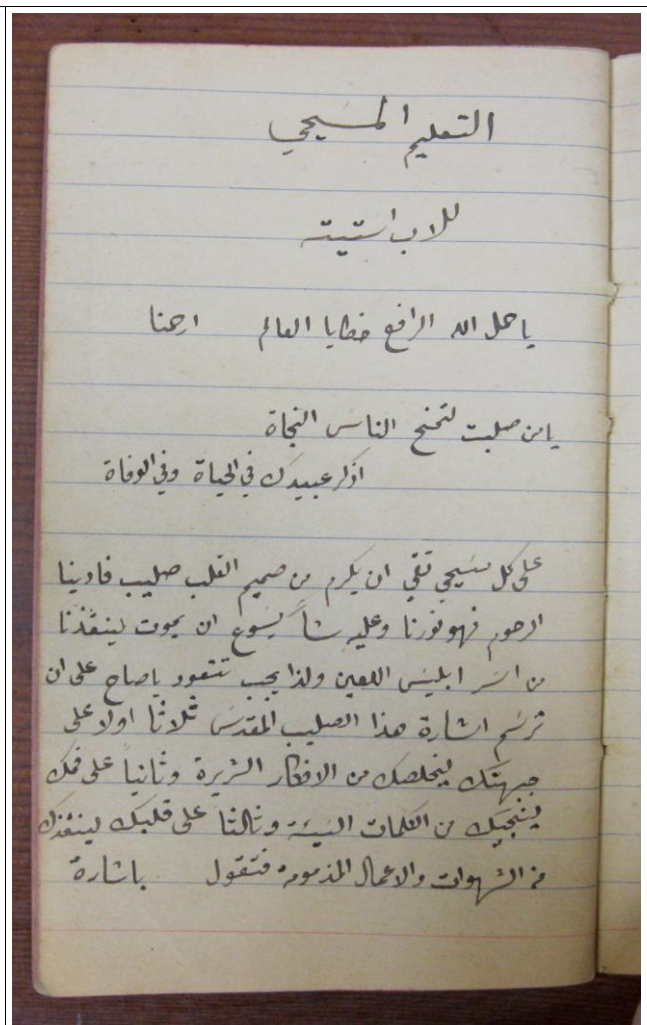 التعليم المسيحي
للاب استيته
يا حمل الله الرافع خطايا العالم ارحمنا
يا من صلبت لتمنح الناس النجاة
اذكر عبيدك في الحياة وفي الوفاة
على كل مسيحي تقي ان يكرم من صميم القلب صليب فادينا
الرحوم فهو نورنا وعليه شاً يسوع ان يموت لينقذنا
من اسر ابليس اللعين ولذا يجب تتعود يا صاح على ان
ترسم اشارة هذا الصليب المقدس ثلاثا اولا على
جبهتك ليخلصك من الافكار الشريرة وثانياً على فمك
لينجيك من الكلمات السيئة وثالثاً على قلبك لينقذك
من الشهوات والاعمال المذمومة فتقول باشارة